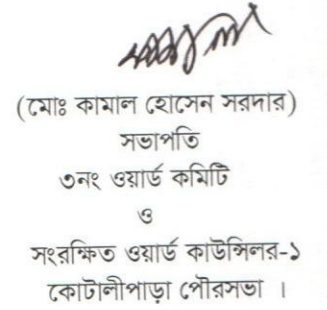 (মোঃ কামাল হোসেন সরদার)
সভাপতি
৩নং ওয়ার্ড কমিটি
ও
সংরক্ষিত ওয়ার্ড কাউন্সিলর-১
কোটালীপাড়া পৌরসভা ।